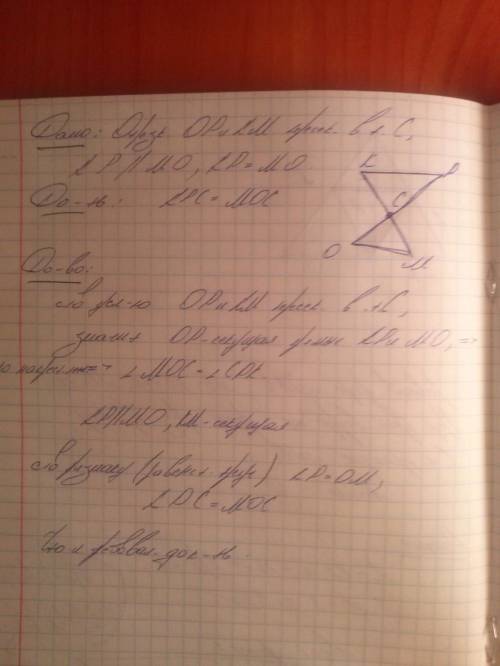 Дано: Отрезк OP и LM перес. в т. C,
LP || MO, LP = MO
До-ть: LPC = MOC
L
P
C
O
M
До-во:
по усл-ю OP и LM перес. в т.C,
значит OP-секущая прямых LP и MO, =>
=> ∠MOC = ∠CPL
LP||MO, LM-секущая
По признаку (равенст. треуг) LP = OM,
LPC = MOC
Что и требовал. док-ть.